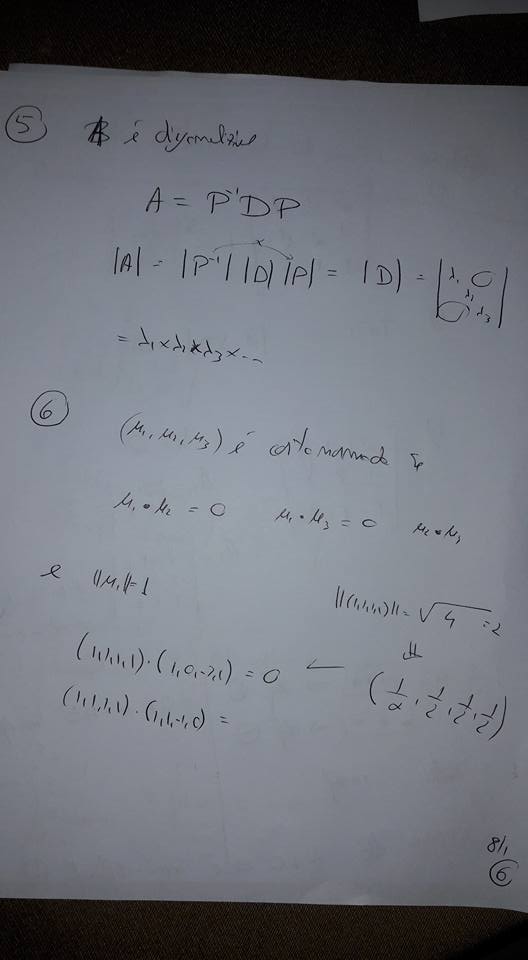 ⑤ A é diagonalizável
A = P⁻¹DP
|A| = |P⁻¹| |D| |P| = |D| = |λ₁ 0 λ₁ 0 λ₃|
= λ₁ × λ₁ × λ₃ × ...
⑥
(μ₁, μ₂, μ₃) é ortonormada se
μ₁ • μ₂ = 0 μ₁ • μ₃ = 0 μ₂ • μ₃
e ||μ₁|| = 1 ||(1,1,1,1)|| = √4 = 2
⇓
(1,1,1,1) · (1,0,-2,1) = 0 ← (1/2, 1/2, 1/2, 1/2)
(1,1,1,1) · (1,1,-1,0) =
8/1
⑥